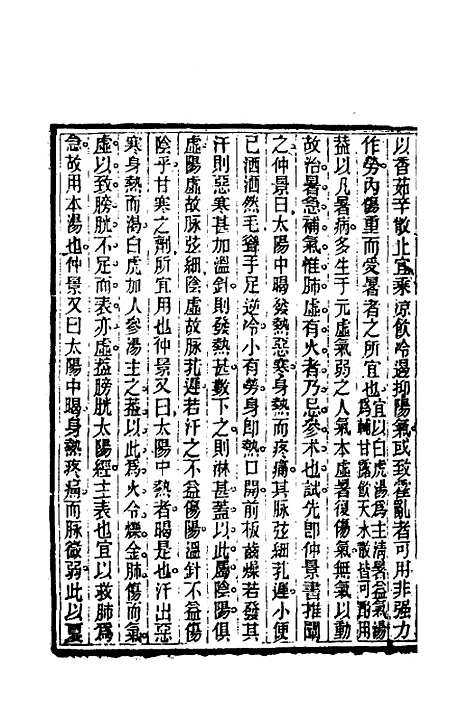 以香茹辛散止宜乘涼飲冷遏抑陽氣或致霍亂者可用非强力
作勞內傷重而受暑者之所宜也宜以白虎湯爲主清暑益氣湯
爲輔甘露飲天水散皆可酌用
葢以凡暑病多生于元虛氣弱之人氣本虛暑復傷氣無氣以動
故治暑急補氣惟肺虛有火者乃忌參术也試先卽仲景書推闡
之仲景曰太陽中暍發熱惡寒身熱而疼痛其脉弦細芤遲小便
已洒洒然毛聳手足逆冷小有勞身卽熱口開前板齒燥若發其
汗則惡寒甚加溫針則發熱甚數下之則淋甚葢以此屬陰陽俱
虛陽虛故脉弦細陰虛故脉芤遲若汗之不益傷陽溫針不益傷
陰乎甘寒之劑所宜用也仲景又曰太陽中熱者暍是也汗出惡
寒身熱而渴白虎加人參湯主之葢以此爲火令爍金肺傷而氣
虛以致膀胱不足而表亦虛葢膀胱太陽經主表也宜以救肺爲
急故用本湯也仲景又曰太陽中暍身熱疼痛而脉微弱此以夏